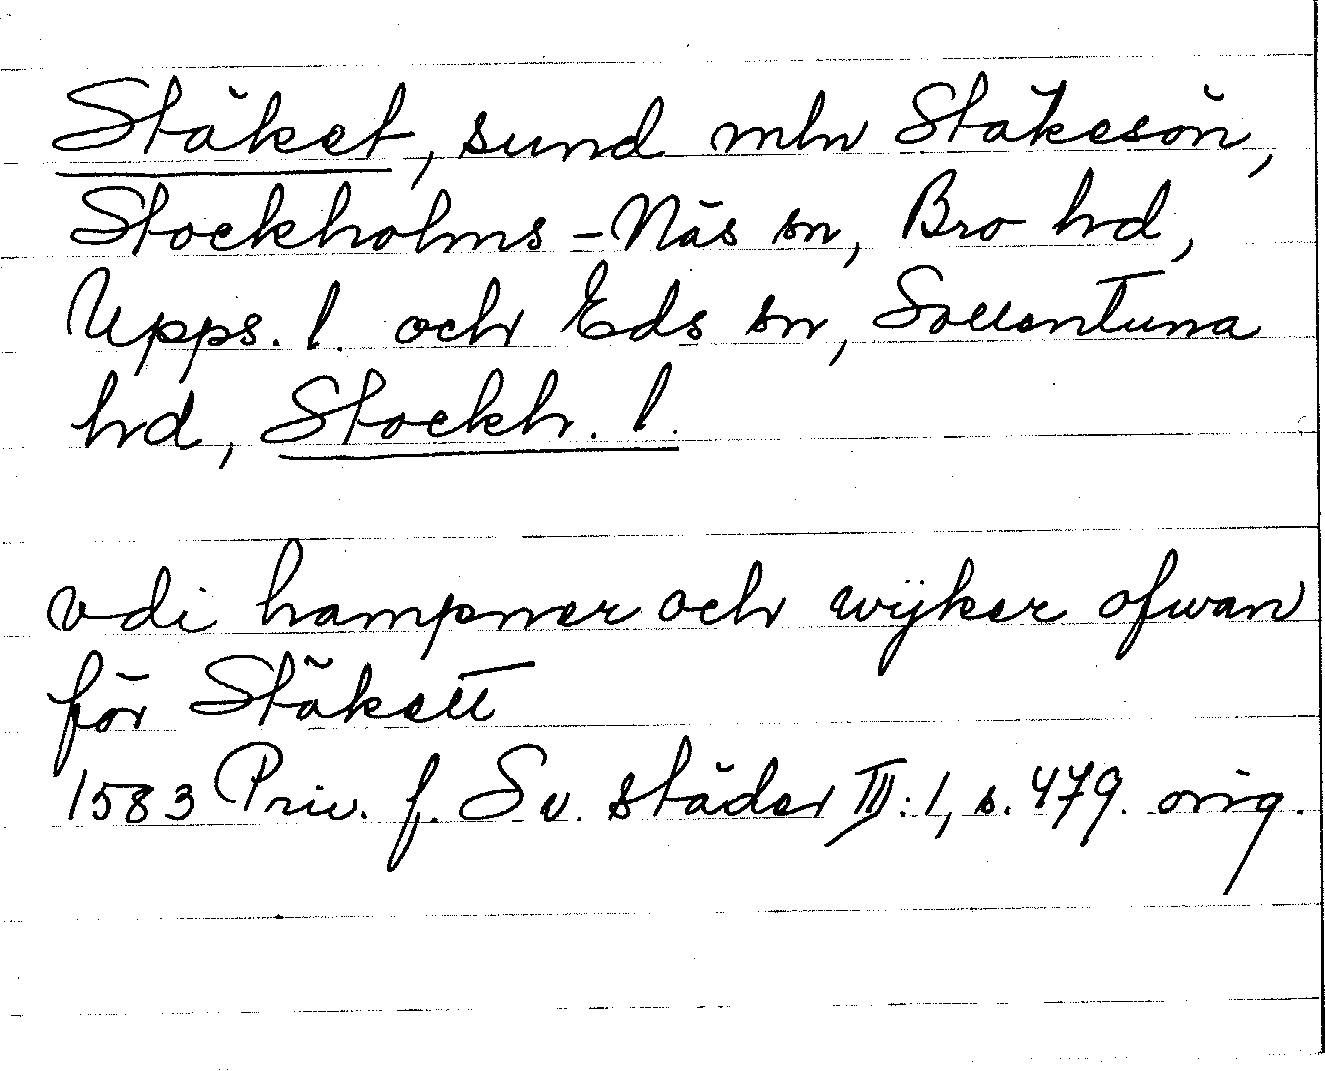 Stäket, sund mln Stäkesön,
Stockholms-Näs sn, Bro hd,
Upps. l. och Eds sn, Sollentuna
hd, Stockh. l.
vdi hampner och wijker ofwan
för Stäkett
1583 Priv. f. Sv. städer III:1, s. 479. orig.